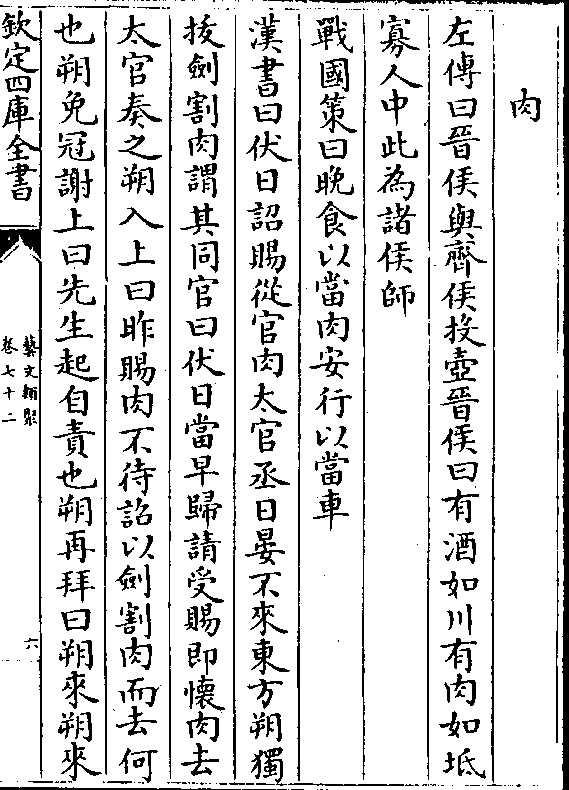 肉
左傳曰晉侯與齊侯投壺晉侯曰有酒如川有肉如坻
寡人中此為諸侯師
戰國策曰晚食以當肉安行以當車
漢書曰伏日詔賜從官肉太官丞日晏不來東方朔獨
拔劍割肉謂其同官曰伏日當早歸請受賜即懷肉去
太官奏之朔入上曰昨賜肉不待詔以劍割肉而去何
也朔免冠謝上曰先生起自責也朔再拜曰朔來朔來
欽定四庫全書
藝文類聚
卷七十二
六